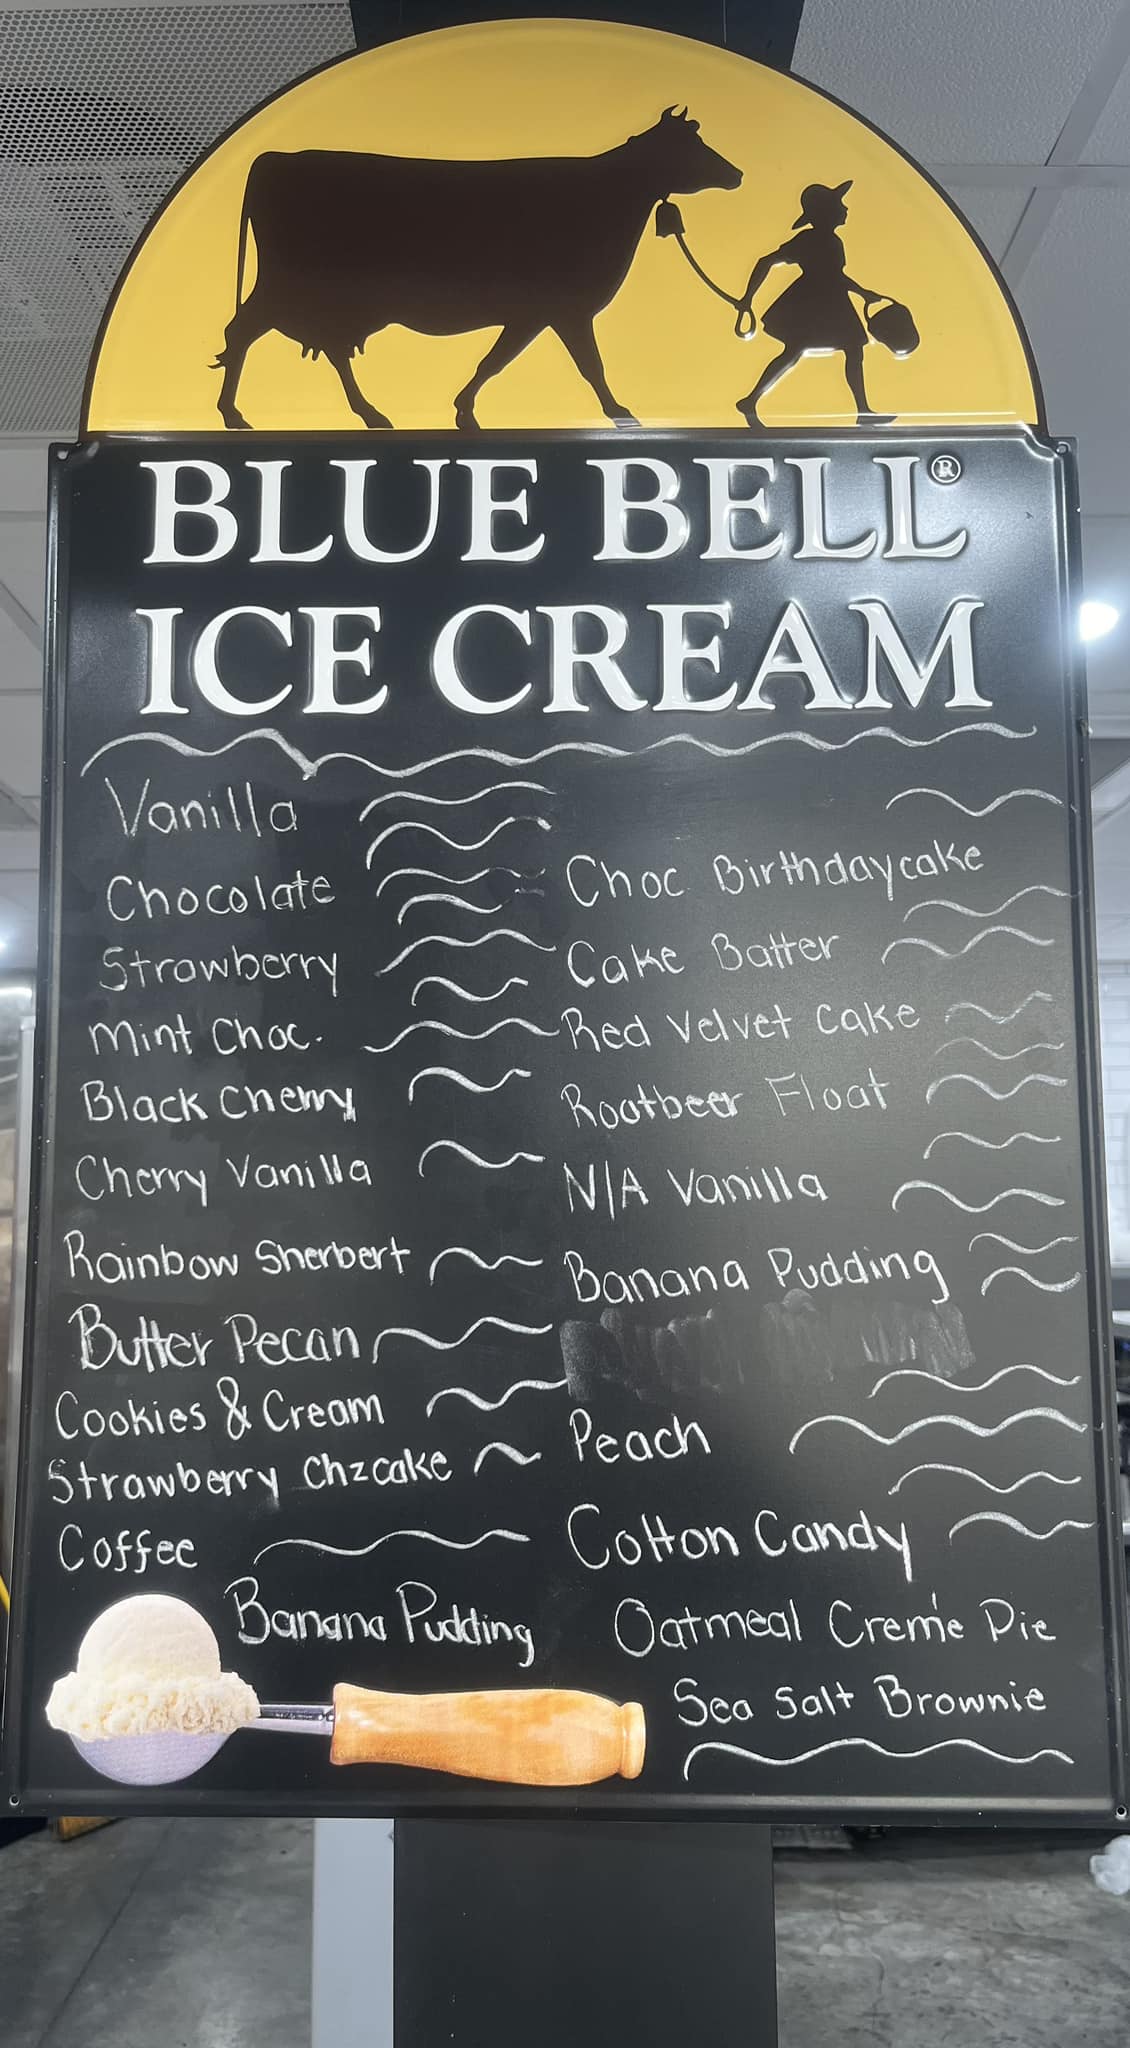 BLUE BELL®
ICE CREAM
Vanilla
Chocolate
Strawberry
Mint Choc.
Black Cherry
Cherry Vanilla
Rainbow Sherbert
Butter Pecan
Cookies & Cream
Strawberry Chzcake
Coffee
Banana Pudding
Choc Birthdaycake
Cake Batter
Red Velvet Cake
Rootbeer Float
N/A Vanilla
Banana Pudding
Peach
Cotton Candy
Oatmeal Creme Pie
Sea Salt Brownie